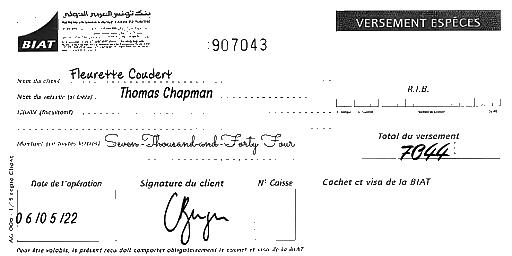 بنك تونس العربي الدولي
BIAT
:907043
VERSEMENT ESPÈCES
Nom du client Fleurette Coudert
Nom du verseur (si tiers) Thomas Chapman
R.I.B.
Montant (en toutes lettres) Seven-Thousand-and-Forty Four
Total du versement
7044
Date de l'opération
Signature du client
N° Caisse
Cachet et visa de la BIAT
06/05/22
Pour être valable, le présent reçu doit comporter obligatoirement le cachet et visa de la BIAT